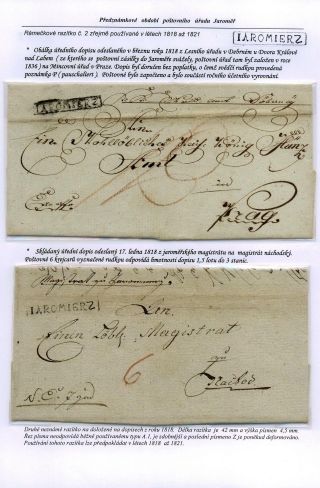 Předznámkové období poštovního úřadu Jaroměř
Rámečkové razítko č. 2 zřejmě používané v létech 1818 až 1821
JAROMIERZ
* Obálka úředního dopisu odeslaného v březnu roku 1818 z Lesního úřadu v Debrném u Dvora Králové
nad Labem ( za kterého se poštovní zásilky do Jaroměře svážely, poštovní úřad tam byl založen v roce
1836 ) na Mincovní úřad v Praze. Dopis byl doručen bez poplatku, o čemž svědčí rudkou provedená
poznámka P ( pauschaliert ). Poštovné bylo započteno a bylo součástí ročního účetního vyrovnání.
JAROMIERZ
Prag
* Skládaný úřední dopis odeslaný 17. ledna 1818 z jaroměřského magistrátu na magistrát náchodský.
Poštovné 6 krejcarů vyznačené rudkou odpovídá hmotnosti dopisu 1,5 lotu do 3 stanic.
JAROMIERZ
Einen Löbl. Magistrat
zu
6
Druhé neznámé razítko na doložené na dopisech z roku 1818. Délka razítka je 42 mm a výška písmen 4,5 mm.
Řez písma neodpovídá běžně používanému typu A.1, je zdobnější a poslední písmeno Z je poněkud deformováno.
Používání tohoto razítka lze předpokládat v létech 1818 až 1821.